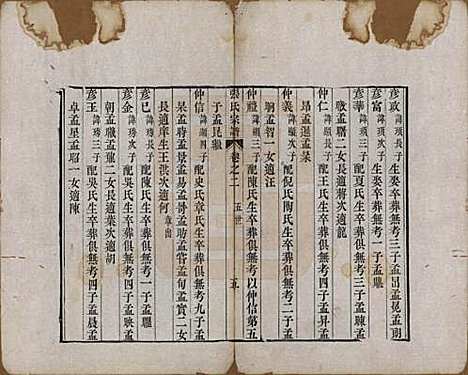 彥政諱瑱長子生娶卒葬俱無考二子孟昌孟朝
彥富諱瑱次子生娶卒葬俱無考一子孟驥
彥華諱瑱三子配夏氏生卒葬俱無考三子孟暕
孟曆二女長適蔣次適龍
仲仁諱顯長子配王氏生卒葬俱無考四子孟昇孟
昂孟暹孟杲
仲義諱顯次子配倪氏陶氏生卒葬俱無考一子孟
駉孟智一女適汪
仲禮諱顯三子配陳氏生卒葬俱無考以仲信第五
子孟昆繼
張氏宗譜
卷之二
五世
五
仲信諱顯四子配史氏章氏生卒葬俱無考九子孟
杲孟時孟景孟易孟晷孟助孟昆孟甸孟實二女
長適岸生王洪次適何章出
彥已諱瑛長子配陳氏生卒葬俱無考一子孟驅
彥金諱瑛次子配吳氏生卒葬俱無考四子孟映孟
朝孟職孟畢二女長適葉次適胡
彥玉諱瑛三子配吳氏生卒葬俱無考四子孟晨孟
卓孟星孟昭一女適陳